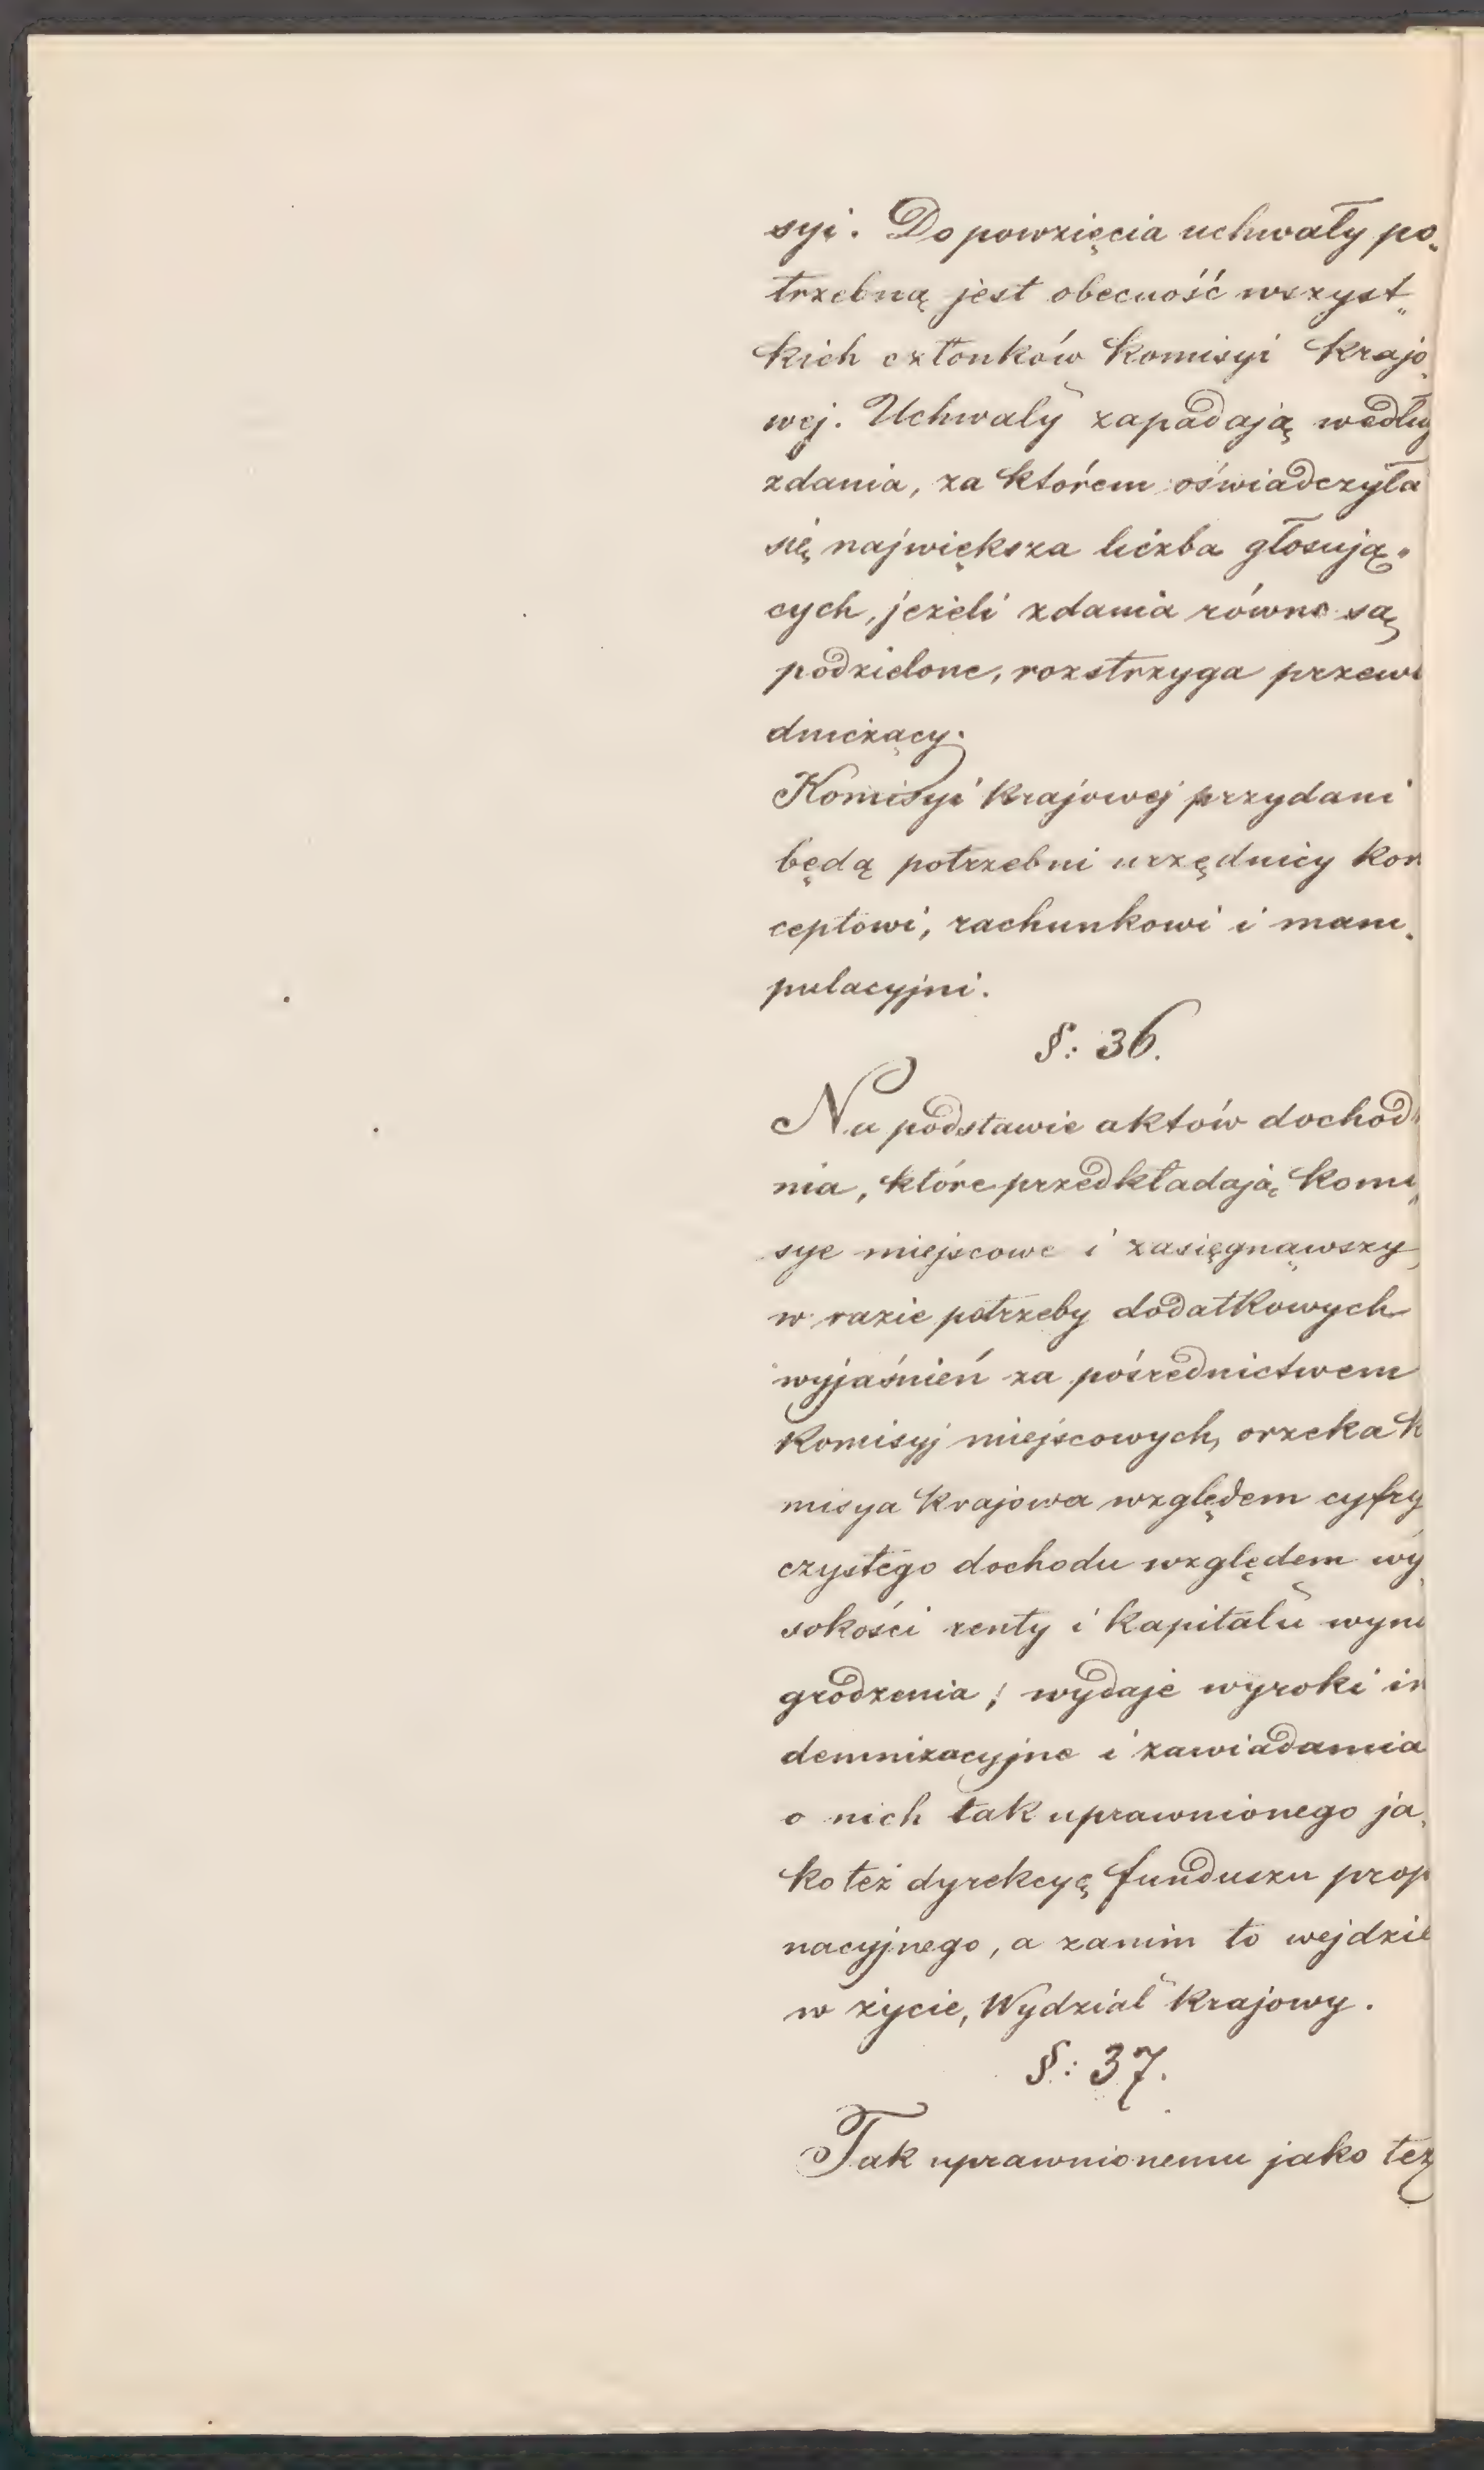 syi. Do powzięcia uchwały po„
trzebną jest obecność wszyst„
kich członków Komisyi Krajo„
wej. Uchwały zapadają według
zdania, za którem oświadczyła
się największa liczba głosują„
cych, jeżeli zdania równo są
podzielone, rozstrzyga przewo
dniczący.
Komisyi Krajowej przydani
będą potrzebni urzędnicy kon
ceptowi, rachunkowi i mani„
pulacyjni.
§: 36.
Na podstawie aktów dochod
nia, które przedkładają Komi„
sye miejscowe i zasięgnąwszy
w razie potrzeby dodatkowych
wyjaśnień za pośrednictwem
Komisyj miejscowych, orzeka K
misya Krajowa względem cyfry
czystego dochodu względem wy
sokości renty i kapitału wyna
grodzenia; wydaje wyroki in
demnizacyjne i zawiadamia
o nich tak uprawnionego ja„
ko też dyrekcyę funduszu prop
nacyjnego, a zanim to wejdzie
w życie, Wydział Krajowy.
§: 37.
Tak uprawnionemu jako też